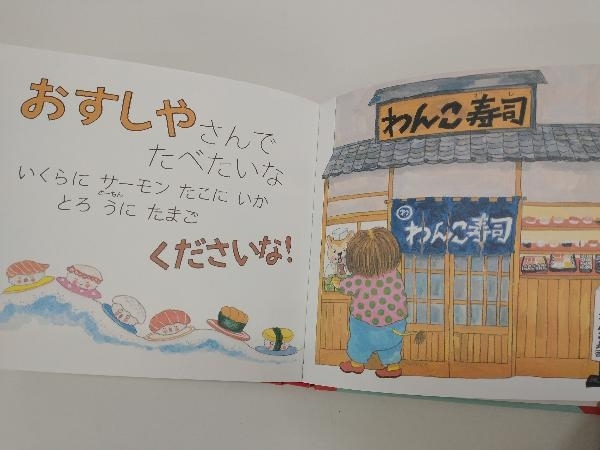 おすしやさんで
たべたいな
いくらに サーモン たこに いか
とろ うに たまご
くださいな!
わんこ寿司
わんこ寿司